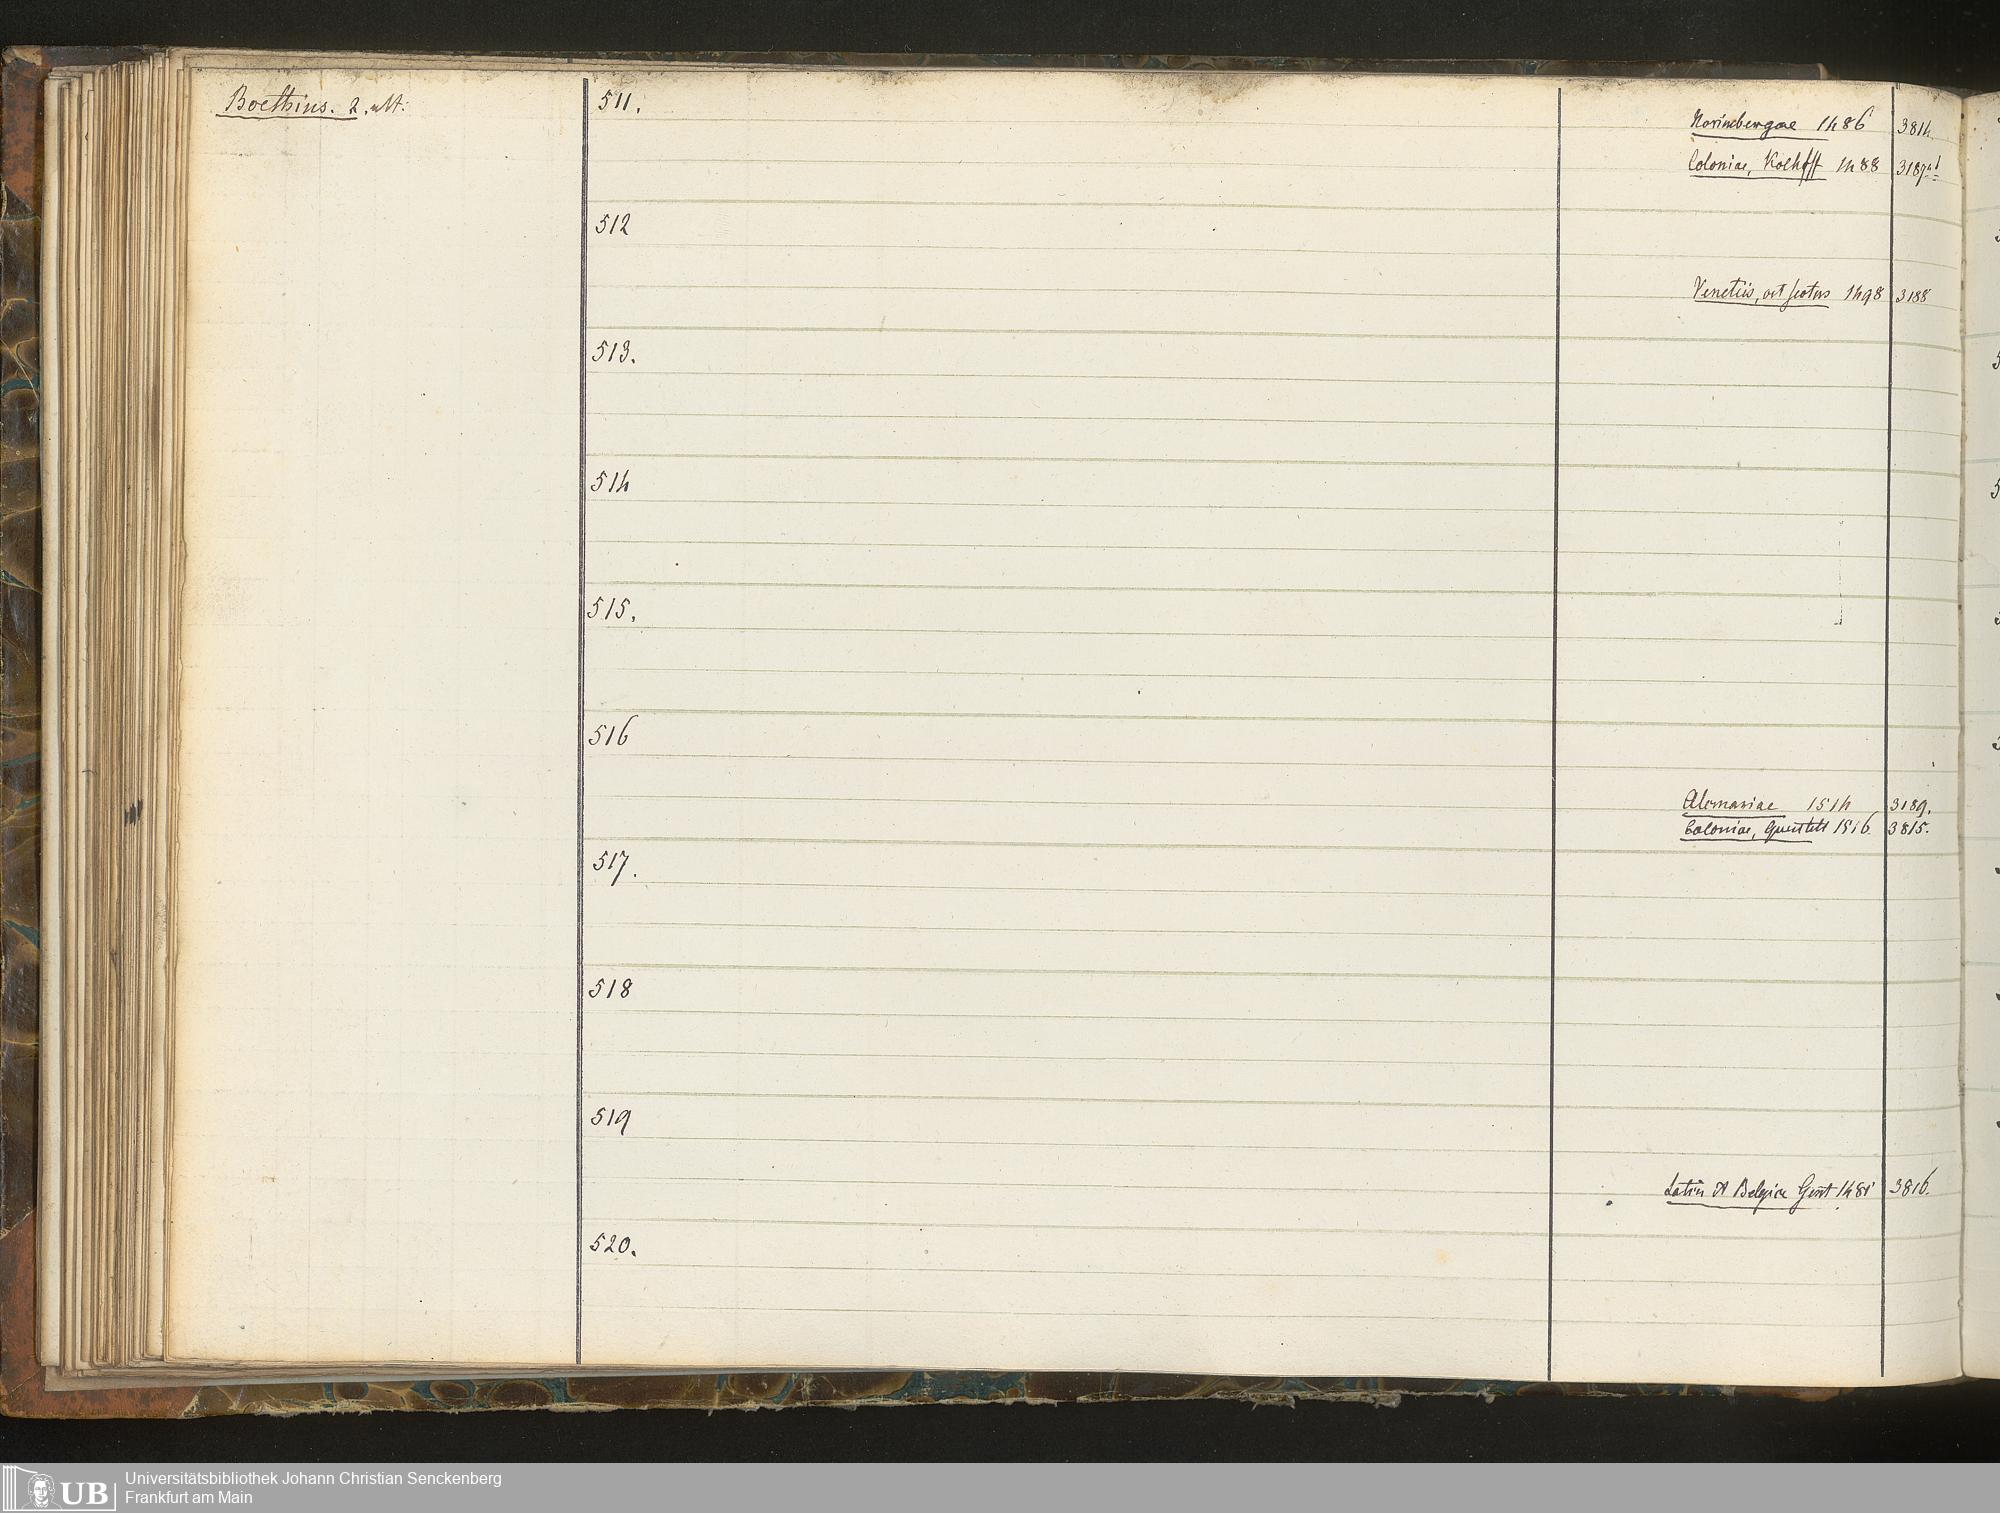 Boethius. 2, ult:
511.
Norimbergae 1486 3814.
Coloniae, Koelhoff 1488 3187
512
Venetiis, oct scotus 1498 3188
513.
514
515.
516
Alemaniae 1514 3189.
Coloniae, Quentell 1516. 3815.
517.
518
519
Latin et Belgice Gent 1481 3816.
520.
UB Universitätsbibliothek Johann Christian Senckenberg
Frankfurt am Main